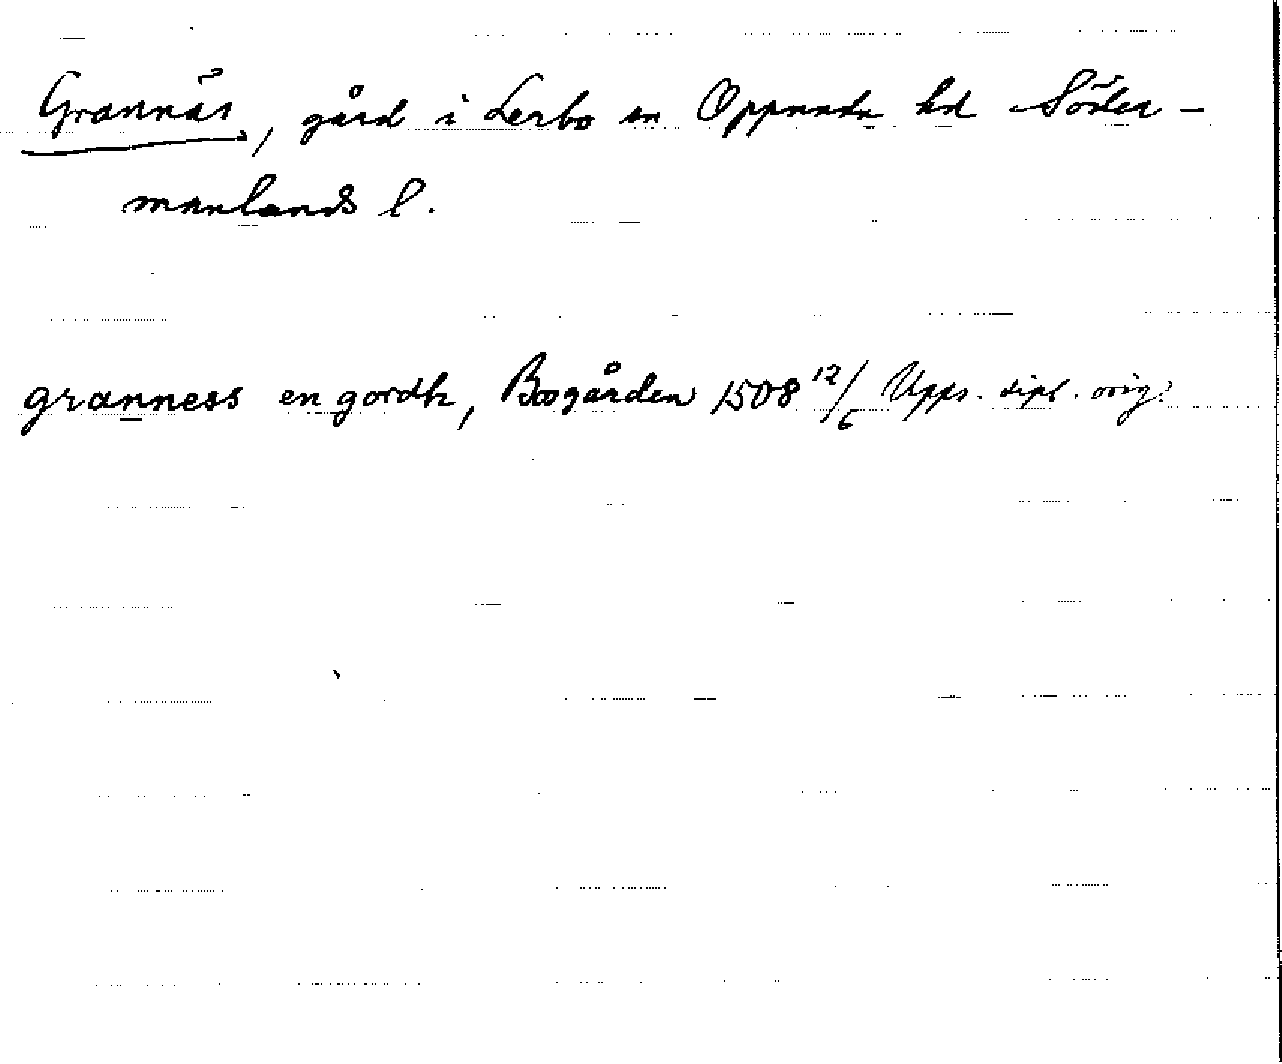 Grannäs, gård i Lerbo sn Oppunda hd Söder-
manlands l.
granness en gordh, Boogården 1508 12/6 Upps. dipl. orig.